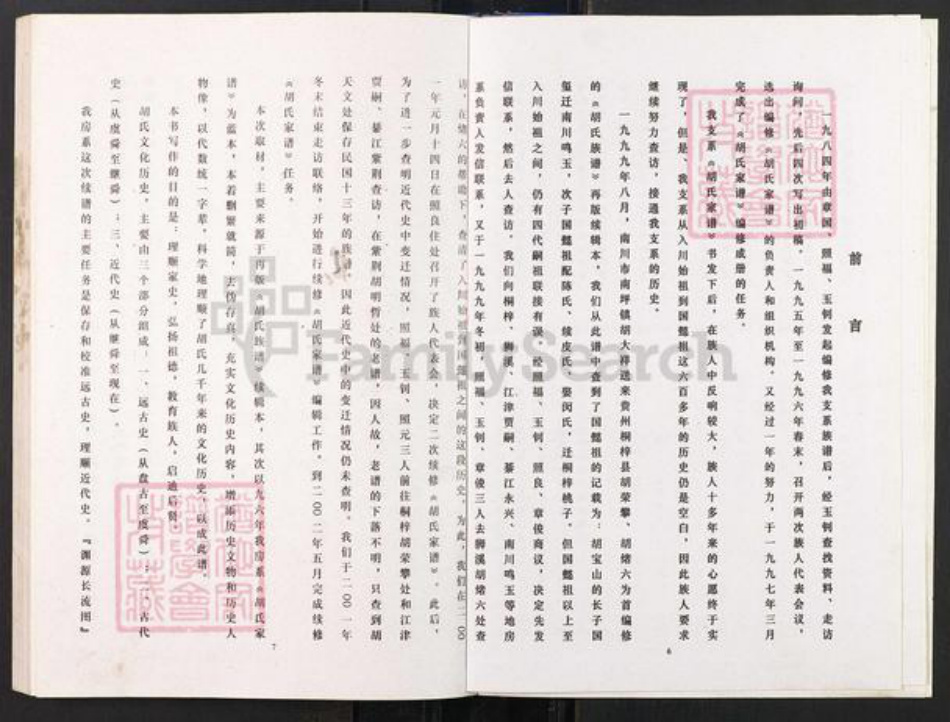 前言
一九八四年由章国、照福、玉钊发起编修我支系族谱后，经玉钊查找资料、走访
询问，先后四次写出初稿，一九九五年至一九九六年春末，召开两次族人代表会议，
选出编修《胡氏家谱》的负责人和组织机构。又经过一年的努力，于一九九七年三月
完成了《胡氏家谱》编修成册的任务。
我支系《胡氏家谱》书发下后，在族人中反响较大，族人十多年来的心愿终于实
现了，但是、我支系从入川始祖到国懿祖这六百多年的历史仍是空白，因此族人要求
继续努力查访，接通我支系的历史。
一九九九年八月，南川市南坪镇胡大祥送来贵州桐梓县胡荣攀、胡绪六为首编修
的《胡氏族谱》再版续辑本，我们从此谱中查到了国懿祖的记载为：胡宝山的长子国
玺迁南川鸣玉，次子国懿祖配陈氏、续皮氏、娶闵氏，迁桐梓桃子。但国懿祖以上至
入川始祖之间，仍有四代嗣祖联接有误。经照福、玉钊、照良、章俊商议，决定先发
信联系，然后去人查访。我们向桐梓、狮溪、江津贾嗣、綦江永兴、南川鸣玉等地房
系负责人发信联系，又于一九九九年冬初，照福、玉钊、章俊三人去狮溪胡绪六处查
访，在绪六的帮助下，查清了入川始祖到国懿祖之间的这段历史，为此，我们在二○○
一年元月十四日在照良住处召开了族人代表会，决定二次续修《胡氏家谱》。此后，
为了进一步查明近代史中变迁情况，照福、玉钊、照元三人前往桐梓胡荣攀处和江津
贾嗣、綦江紫荆查访，在紫荆胡明哲处的老谱，因人故，老谱的下落不明，只查到胡
天文处保存民国十三年的族，因此近代史中的变迁情况仍未查明。我们于二○○一年
冬末结束走访联络，开始进行续修《胡氏家谱》编辑工作。到二○○二年五月完成续修
《胡氏家谱》任务。
本次取材，主要来源于再版《胡氏族谱》续辑本，其次以九六年我房系《胡氏家
谱》为蓝本，本着删繁就简，去伪存真，充实文化历史内容，增添历史文物和历史人
物像，以代数统一字辈，科学地理顺了胡氏几千年来的文化历史，以成此谱。
本书写作的目的是：理顺家史，弘扬祖德，教育族人，启迪后贤。
胡氏文化历史，主要由三个部分组成：一、远古史（从盘古至虞舜）；二、古代
史（从虞舜至继舜）；三、近代史（从继舜至现在）。
我房系这次续谱的主要任务是保存和校准远古史，理顺近代史。『渊源长流图』
6
7
FamilySearch